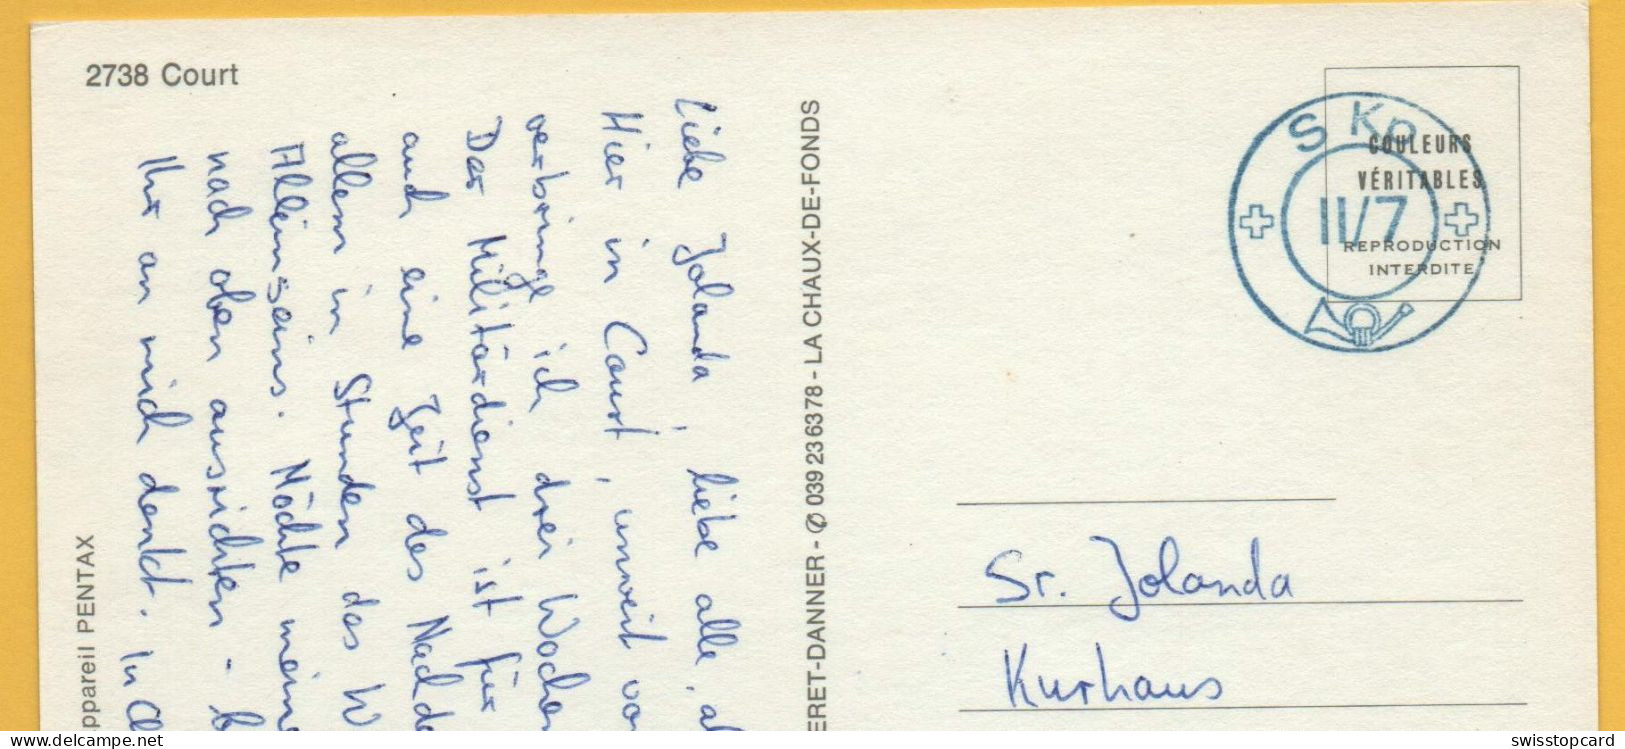 2738 Court
Liebe Jolanda, liebe alle,
Hier in Court, unweit
verbringe ich drei
Der Militärdienst ist für
auch eine Zeit des
allem in Stunden des
Alleinseins. Möchte
nach oben ausrichten -
Ihr an mich denkt. In
PENTAX
ERET-DANNER - ✆ 039 23 63 78 - LA CHAUX-DE-FONDS
S Kp
II/7
COULEURS
VÉRITABLES
REPRODUCTION
INTERDITE
Sr. Jolanda
Kurhaus
delcampe.net
swisstopcard